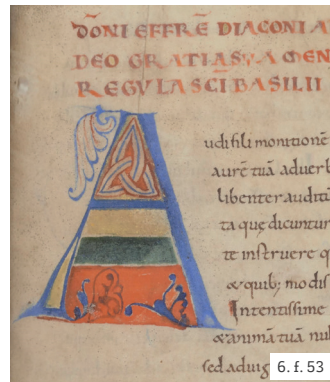 DŌNI EFFRĒ DIACONI A
DEO GRATIAS A MEN
REGULA SCI BASILII
Audi fili monitionē
aurē tuā adverb
libenter auditu
ta quę dicuntur
te instruere q
& quib; modis
Intentissime
& animā tuā nul
sed advig
6. f. 53